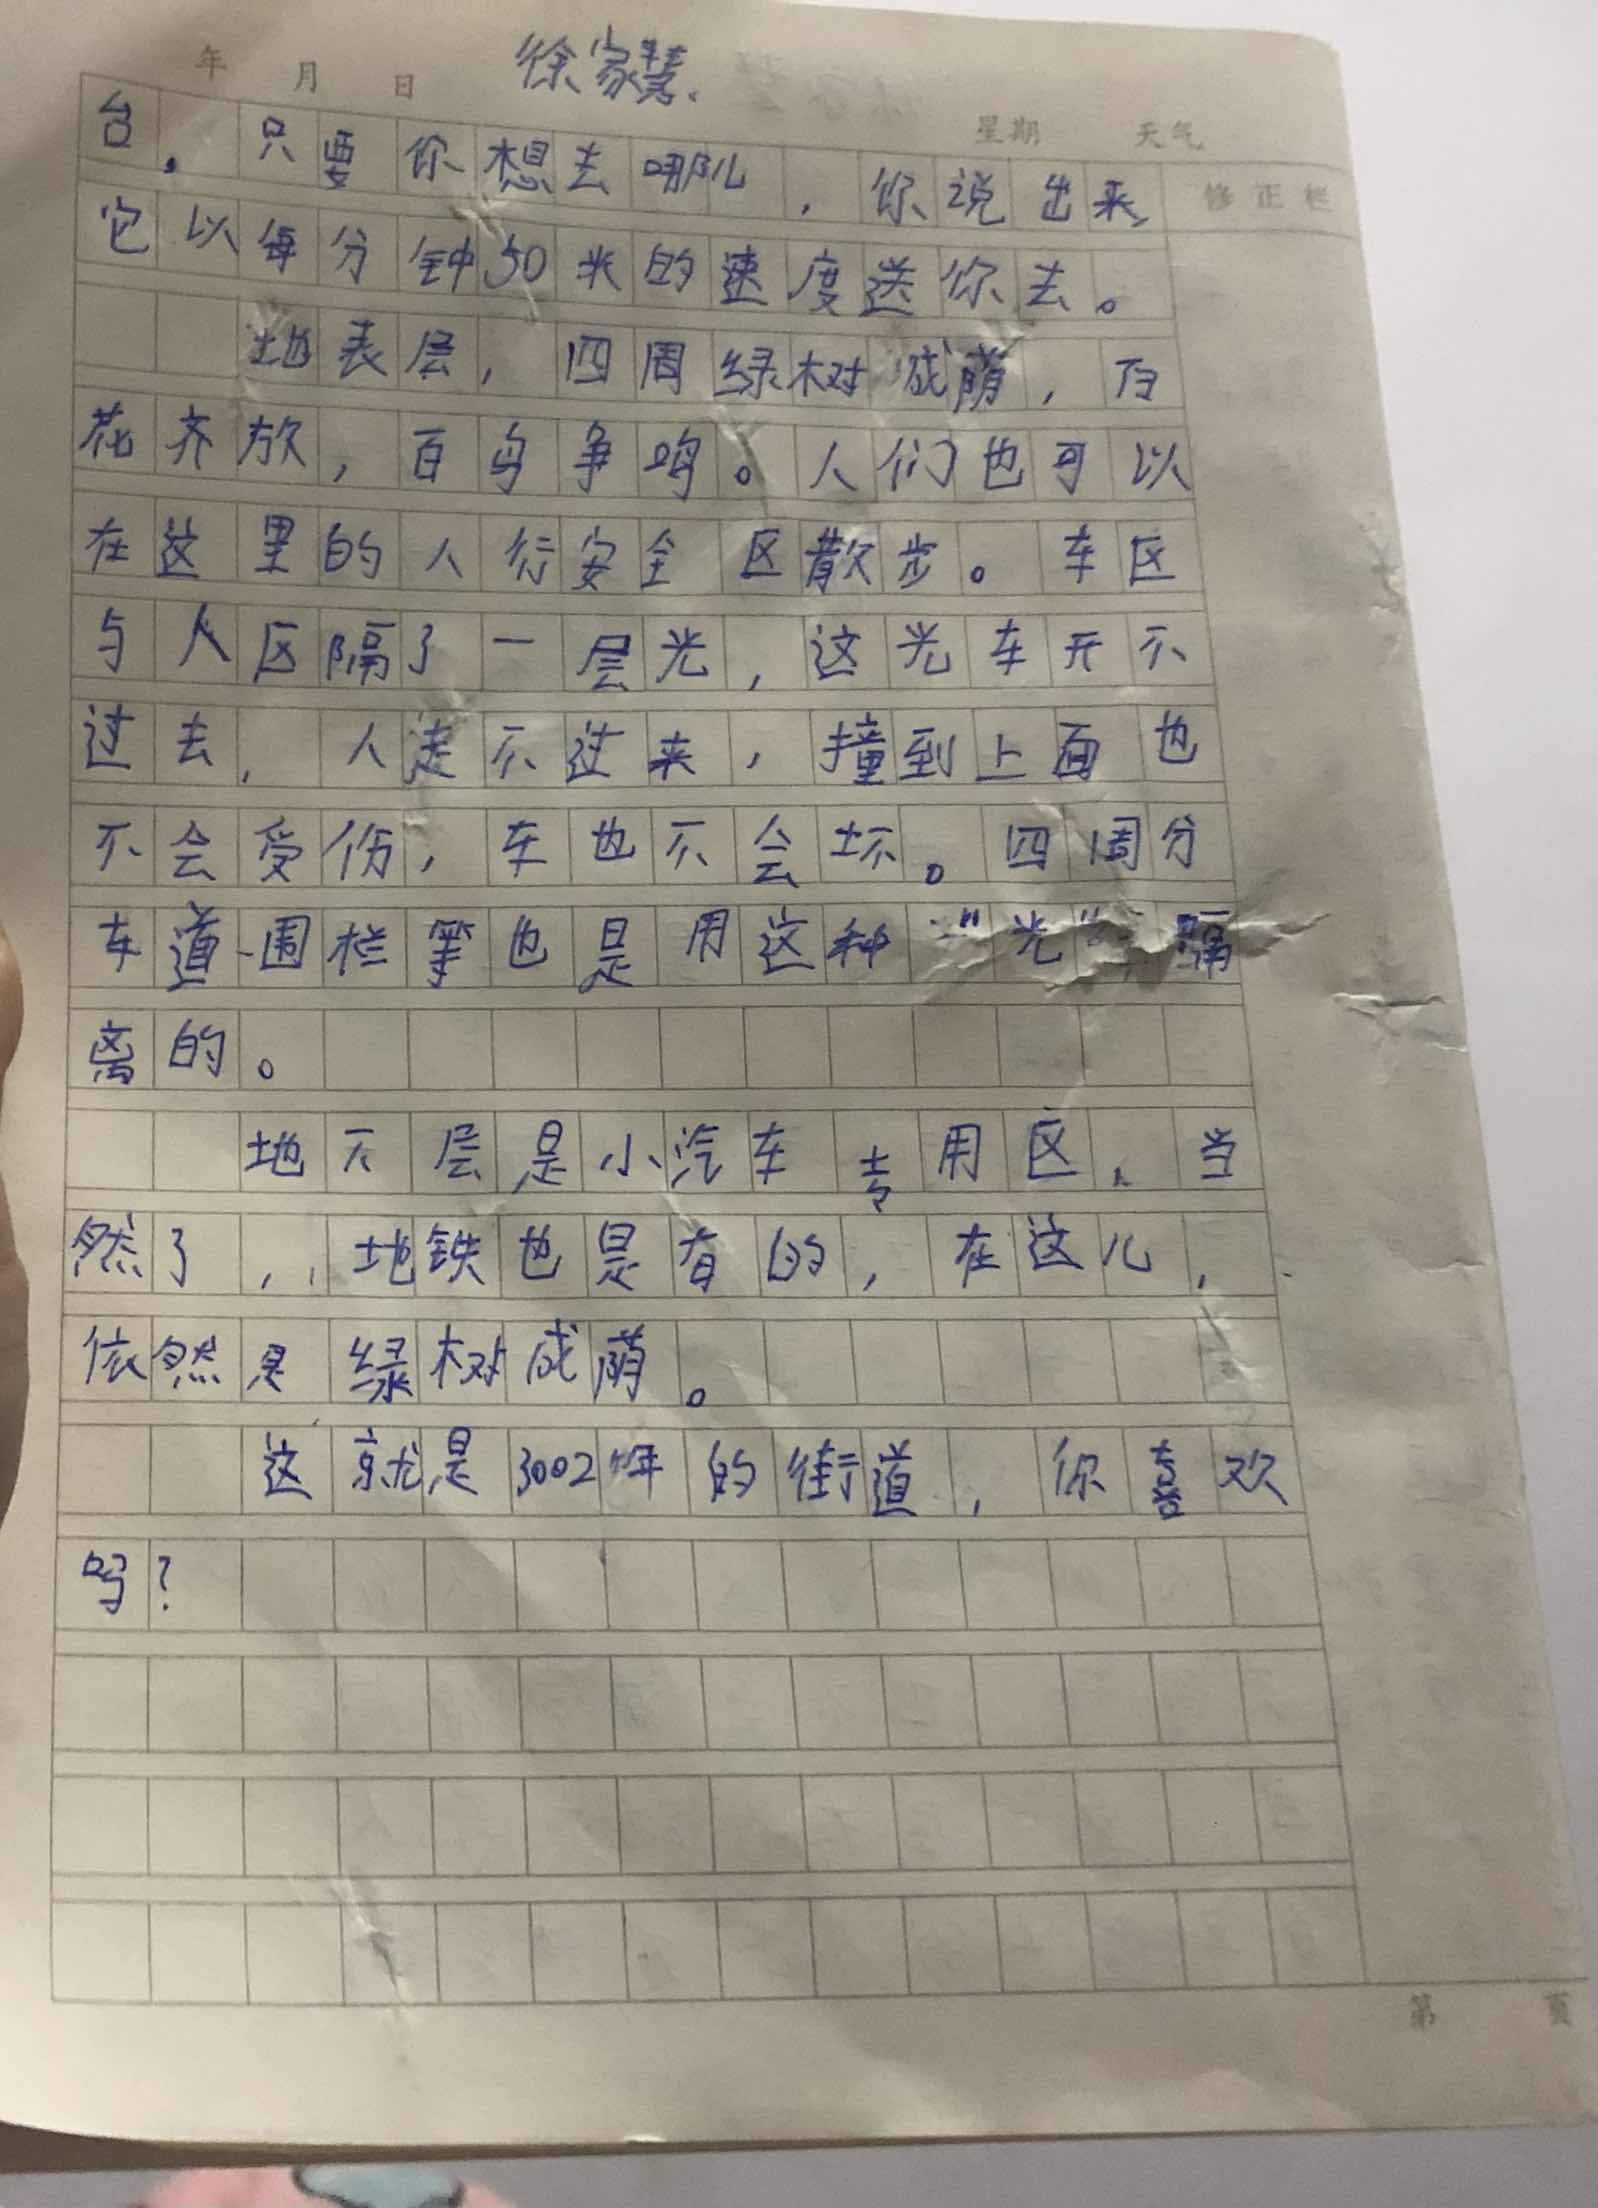 年 月 日 徐家慧.
星期 天气
修正栏
台。只要你想去哪儿，你说出来，
它以每分钟50米的速度送你去。
地表层，四周绿树成荫，百
花齐放，百鸟争鸣。人们也可以
在这里的人行安全区散步。车区
与人区隔了一层光，这光车开不
过去，人走不过来，撞到上面也
不会受伤，车也不会坏。四周分
车道、围栏等也是用这种“光”隔
离的。
地下层是小汽车专用区，当
然了，地铁也是有的，在这儿，
依然是绿树成荫。
这就是3002年的街道，你喜欢
吗？
第 页